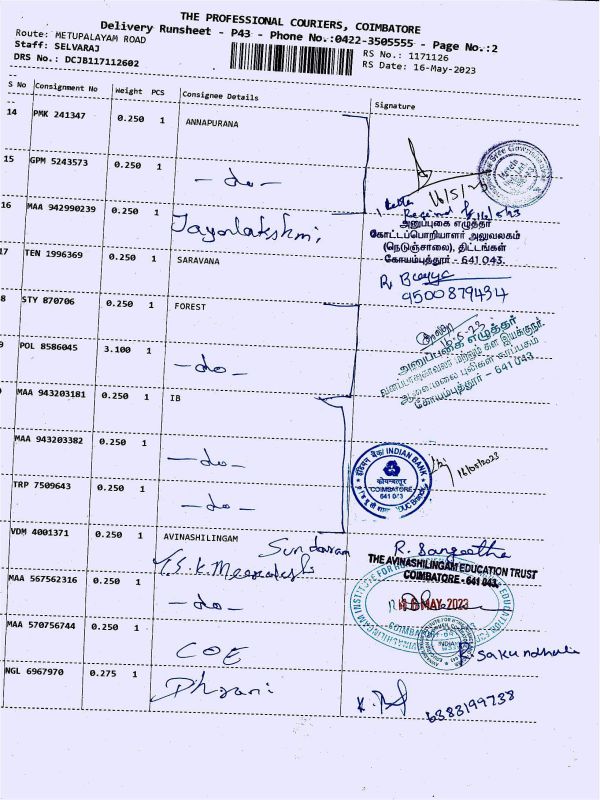 THE PROFESSIONAL COURIERS, COIMBATORE
Delivery Runsheet - P43 - Phone No.:0422-3505555 - Page No.:2
Route: METUPALAYAM ROAD
Staff: SELVARAJ
DRS No.: DCJB117112602
RS No.: 1171126
RS Date: 16-May-2023
S No Consignment No Weight PCS Consignee Details Signature
14 PMK 241347 0.250 1 ANNAPURANA
15 GPM 5243573 0.250 1 - do -
16/5/23
16 MAA 942990239 0.250 1 Jayalakshmi
அனுப்புகை எழுத்தர்
கோட்டப்பொறியாளர் அலுவலகம்
(நெடுஞ்சாலை), திட்டங்கள்
கோயம்புத்தூர் - 641 043.
7 TEN 1996369 0.250 1 SARAVANA
9500879434
8 STY 870706 0.250 1 FOREST
16.5.23
அனுப்புகை எழுத்தர்
கோயம்புத்தூர் - 641 043
9 POL 8586045 3.100 1 - do -
MAA 943203181 0.250 1 IB
MAA 943203382 0.250 1 - do -
इंडियन बैंक INDIAN BANK
कोयम्बत्तूर
COIMBATORE
641 043
16/05/2023
TRP 7509643 0.250 1 - do -
VDM 4001371 0.250 1 AVINASHILINGAM
Sundaram
R. Sangeetha
THE AVINASHILINGAM EDUCATION TRUST
COIMBATORE - 641 043.
16 MAY 2023
MAA 567562316 0.250 1 - do -
MAA 570756744 0.250 1 COE
R. Sakundhali
NGL 6967970 0.275 1 Dharani
6383199738